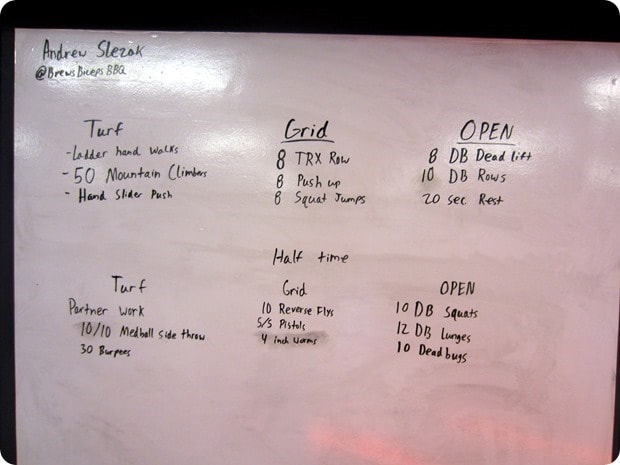 Andrew Slezak
@BrewsBicepsBBQ
Turf
-Ladder hand walks
- 50 Mountain Climbers
- Hand Slider Push
Grid
8 TRX Row
8 Push up
8 Squat Jumps
OPEN
8 DB Dead lift
10 DB Rows
20 sec Rest
Half time
Turf
Partner work
10/10 Medball side throw
30 Burpees
Grid
10 Reverse Flys
5/5 Pistols
4 inch worms
OPEN
10 DB Squats
12 DB lunges
10 Deadbugs